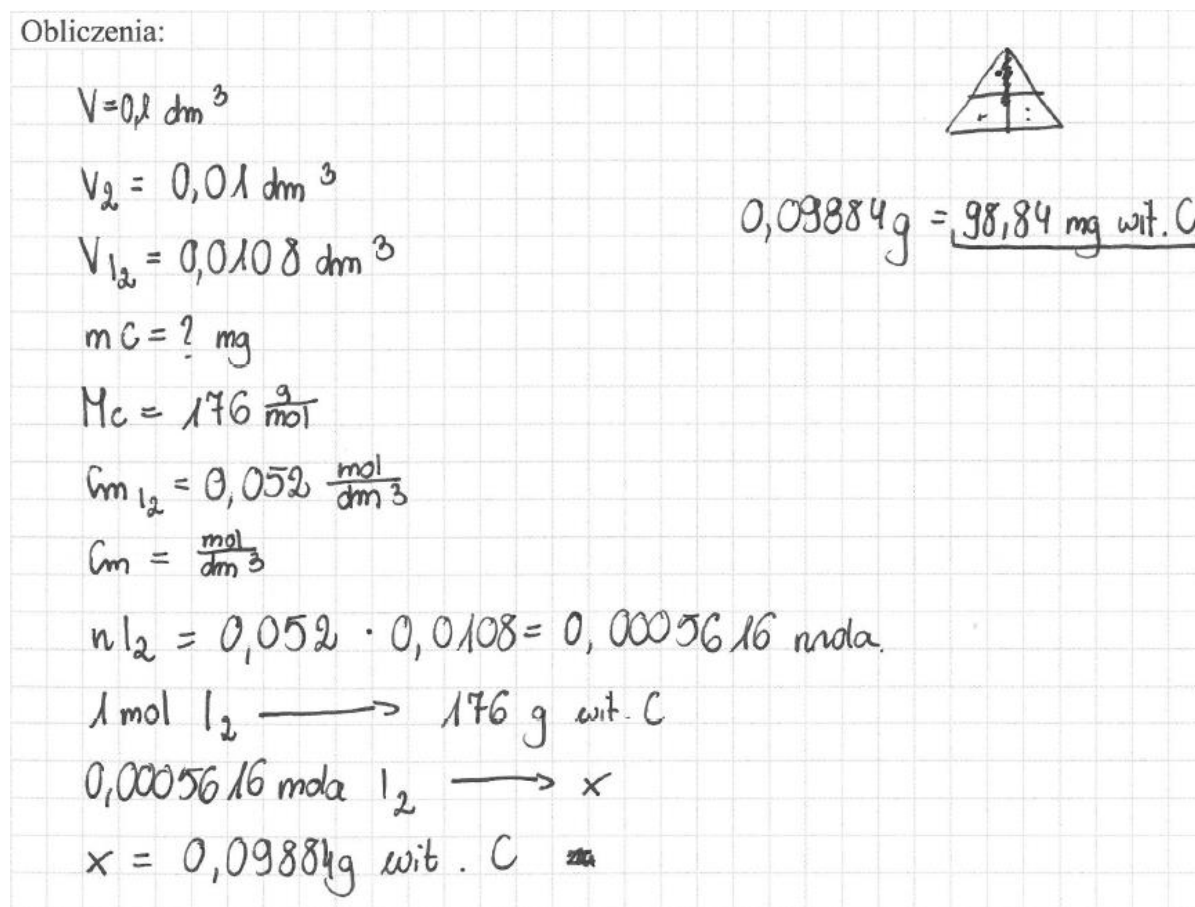 Obliczenia:
V=0,1 dm³
V₂ = 0,01 dm³
V I₂ = 0,0108 dm³
m C = ? mg
Mc = 176 g/mol
Cm I₂ = 0,052 mol/dm³
Cm = mol/dm³
n I₂ = 0,052 · 0,0108 = 0,0005616 mola.
1 mol I₂ ⟶ 176 g wit. C
0,0005616 mola I₂ ⟶ x
x = 0,09884g wit. C
0,09884g = 98,84 mg wit. C